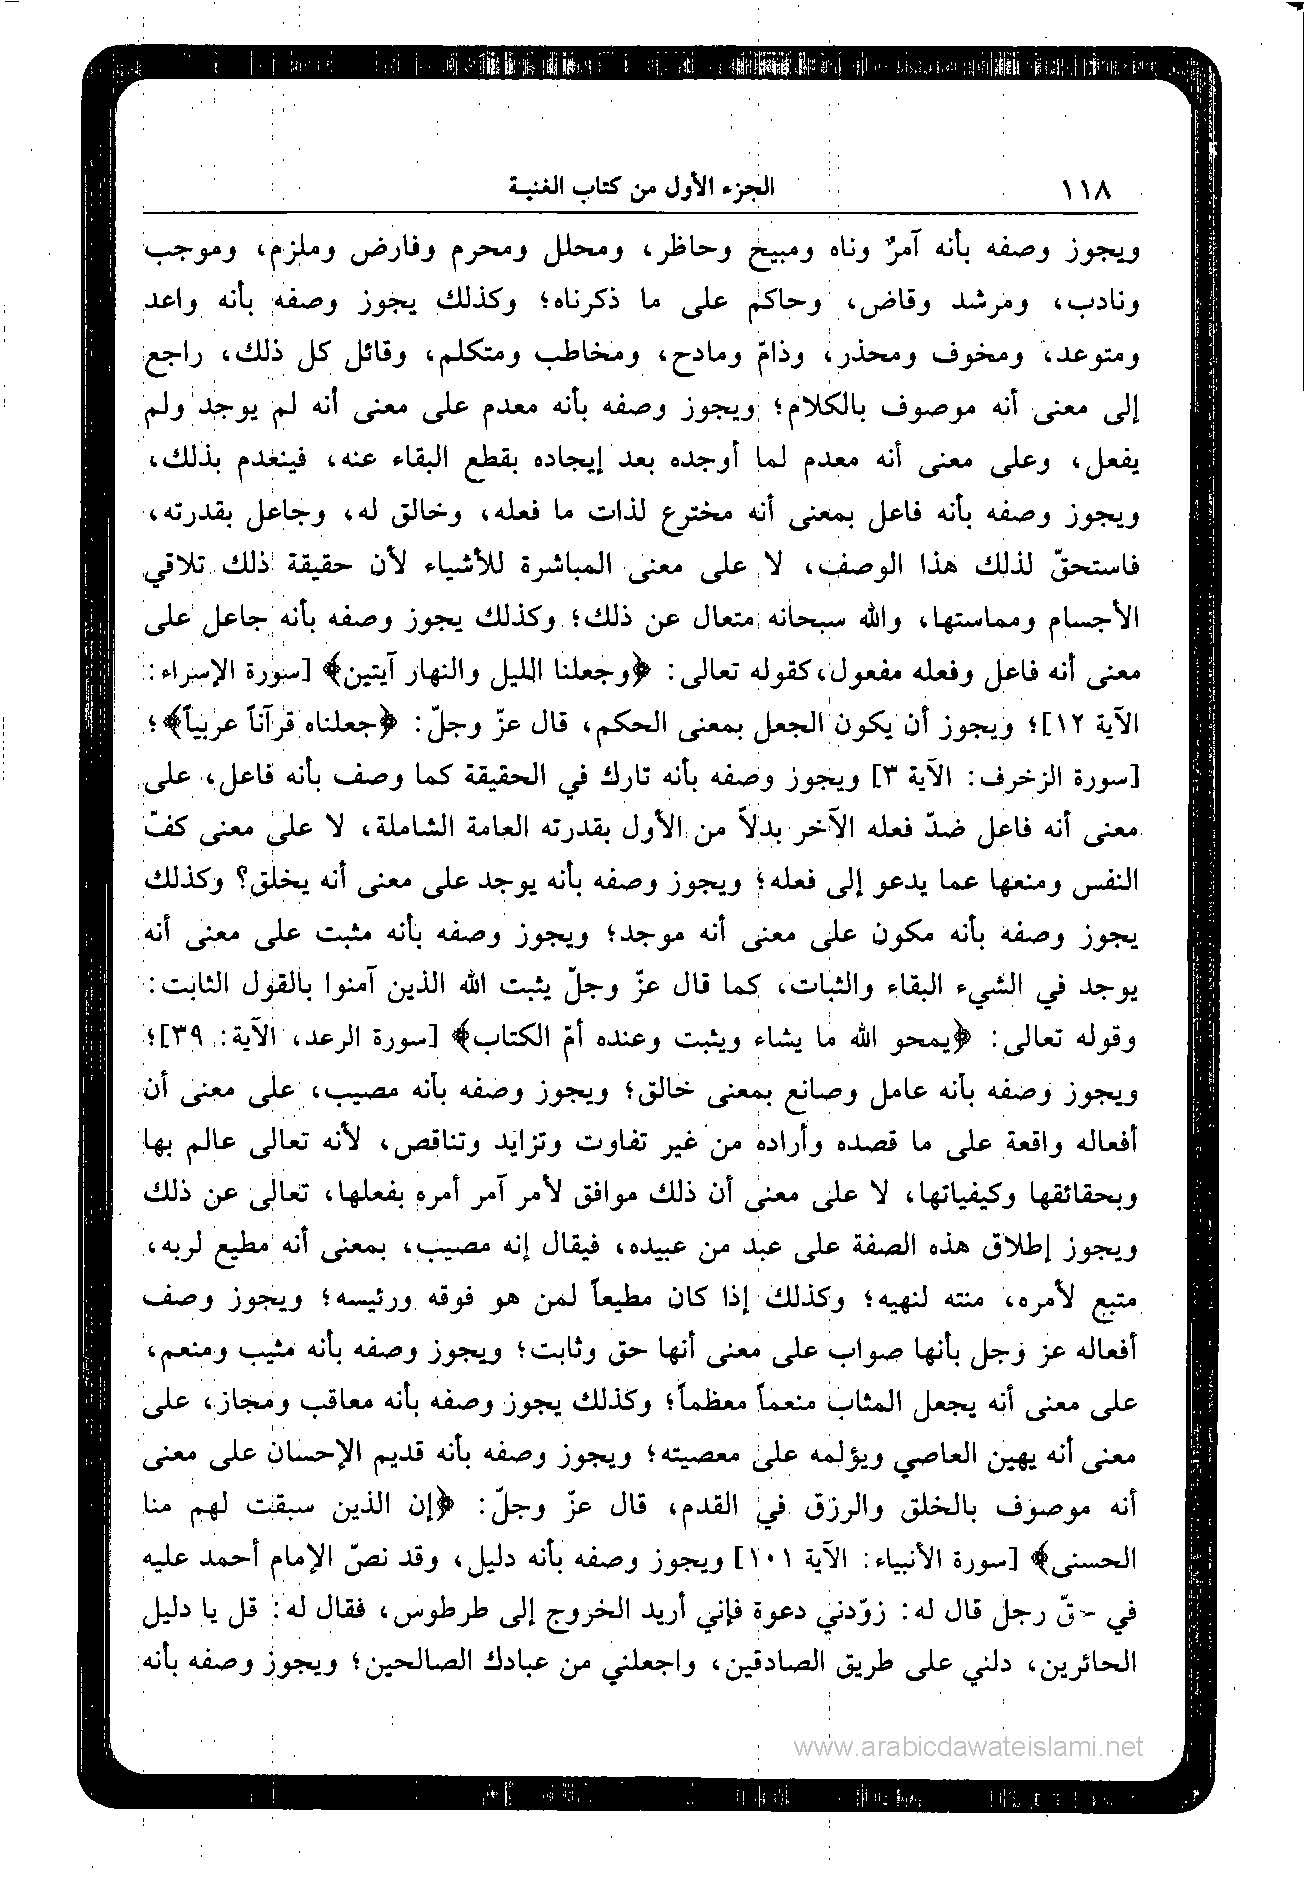 ١١٨
الجزء الأول من كتاب الغنية
ويجوز وصفه بأنه آمرٌ وناه ومبيح وحاظر، ومحلل ومحرم وفارض وملزم، وموجب
ونادب، ومرشد وقاض، وحاكم على ما ذكرناه؛ وكذلك يجوز وصفه بأنه واعد
ومتوعد، ومخوف ومحذر، وذامّ ومادح، ومخاطب ومتكلم، وقائل كل ذلك، راجع
إلى معنى أنه موصوف بالكلام؛ ويجوز وصفه بأنه معدم على معنى أنه لم يوجد ولم
يفعل، وعلى معنى أنه معدم لما أوجده بعد إيجاده بقطع البقاء عنه، فينعدم بذلك،
ويجوز وصفه بأنه فاعل بمعنى أنه مخترع لذات ما فعله، وخالق له، وجاعل بقدرته،
فاستحقّ لذلك هذا الوصف، لا على معنى المباشرة للأشياء لأن حقيقة ذلك تلاقي
الأجسام ومماستها، والله سبحانه متعال عن ذلك؛ وكذلك يجوز وصفه بأنه جاعل على
معنى أنه فاعل وفعله مفعول، كقوله تعالى: ﴿وجعلنا الليل والنهار آيتين﴾ [سورة الإسراء:
الآية ١٢]؛ ويجوز أن يكون الجعل بمعنى الحكم، قال عزّ وجلّ: ﴿جعلناه قرآناً عربياً﴾؛
[سورة الزخرف: الآية ٣] ويجوز وصفه بأنه تارك في الحقيقة كما وصف بأنه فاعل، على
معنى أنه فاعل ضدّ فعله الآخر بدلاً من الأول بقدرته العامة الشاملة، لا على معنى كفّ
النفس ومنعها عما يدعو إلى فعله؛ ويجوز وصفه بأنه يوجد على معنى أنه يخلق؟ وكذلك
يجوز وصفه بأنه مكون على معنى أنه موجد؛ ويجوز وصفه بأنه مثبت على معنى أنه
يوجد في الشيء البقاء والثبات، كما قال عزّ وجلّ يثبت الله الذين آمنوا بالقول الثابت:
وقوله تعالى: ﴿يمحو الله ما يشاء ويثبت وعنده أمّ الكتاب﴾ [سورة الرعد، الآية: ٣٩]؛
ويجوز وصفه بأنه عامل وصانع بمعنى خالق؛ ويجوز وصفه بأنه مصيب، على معنى أن
أفعاله واقعة على ما قصده وأراده من غير تفاوت وتزايد وتناقص، لأنه تعالى عالم بها
وبحقائقها وكيفياتها، لا على معنى أن ذلك موافق لأمر آمر أمره بفعلها، تعالى عن ذلك
ويجوز إطلاق هذه الصفة على عبد من عبيده، فيقال إنه مصيب، بمعنى أنه مطيع لربه،
متبع لأمره، منته لنهيه؛ وكذلك إذا كان مطيعاً لمن هو فوقه ورئيسه؛ ويجوز وصف
أفعاله عز وجل بأنها صواب على معنى أنها حق وثابت؛ ويجوز وصفه بأنه مثيب ومنعم،
على معنى أنه يجعل المثاب منعماً معظماً؛ وكذلك يجوز وصفه بأنه معاقب ومجاز، على
معنى أنه يهين العاصي ويؤلمه على معصيته؛ ويجوز وصفه بأنه قديم الإحسان على معنى
أنه موصوف بالخلق والرزق في القدم، قال عزّ وجلّ: ﴿إن الذين سبقت لهم منا
الحسنى﴾ [سورة الأنبياء: الآية ١٠١] ويجوز وصفه بأنه دليل، وقد نصّ الإمام أحمد عليه
في رجل قال له: زوّدني دعوة فإني أريد الخروج إلى طرطوس، فقال له: قل يا دليل
الحائرين، دلني على طريق الصادقين، واجعلني من عبادك الصالحين؛ ويجوز وصفه بأنه
www.arabicdawateislami.net